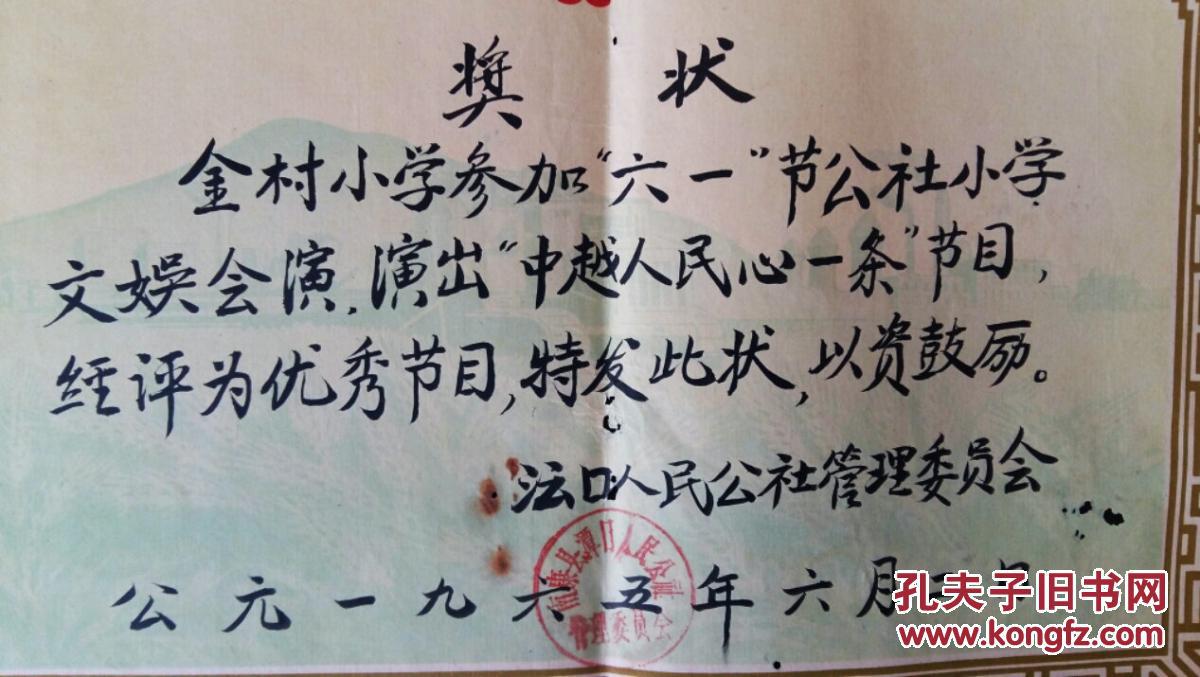 奖状
金村小学参加“六一”节公社小学
文娱会演,演出“中越人民心一条”节目,
经评为优秀节目,特发此状,以资鼓励。
沄口人民公社管理委员会
县潭口人民公社
管理委员会
公元一九六五年六月
孔夫子旧书网
www.kongfz.com